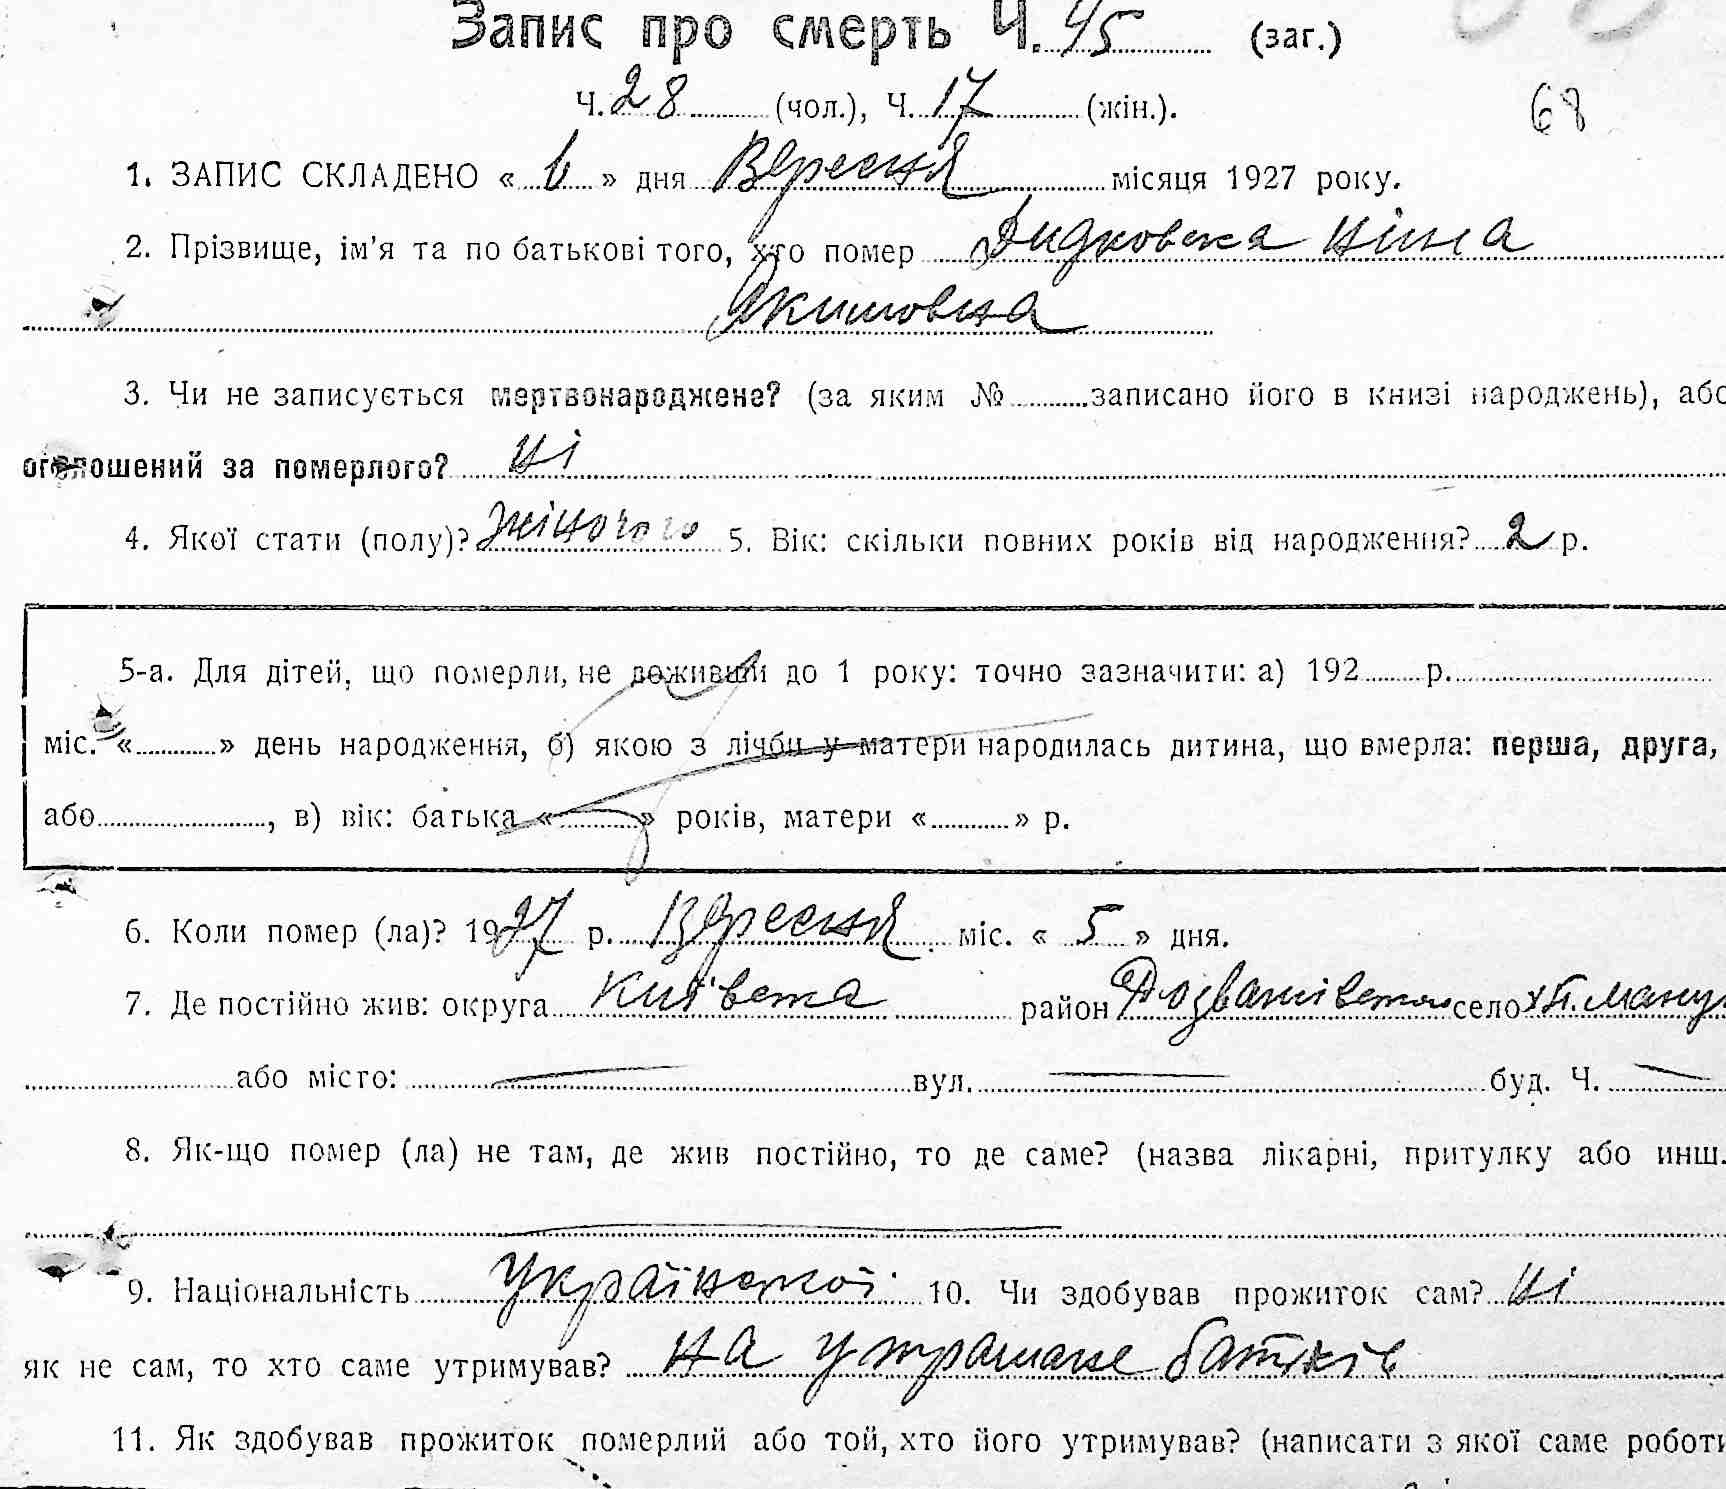 Запис про смерть Ч. 45 (заг.)
Ч. 28 (чол.), Ч. 17 (жін.).
68
1. ЗАПИС СКЛАДЕНО « 6 » дня Вересня місяця 1927 року.
2. Прізвище, ім'я та по батькові того, хто помер Дидковска Ніна
Якимовна
3. Чи не записується мертвонароджене? (за яким № записано його в книзі народжень), або
оголошений за померлого? ні
4. Якої стати (полу)? жіночого 5. Вік: скільки повних років від народження? 2 р.
5-а. Для дітей, що померли, не доживши до 1 року: точно зазначити: а) 192 р.
міс. « » день народження, б) якою з лічби у матери народилась дитина, що вмерла: перша, друга,
або , в) вік: батька « » років, матери « » р.
6. Коли помер (ла)? 1927 р. Вересня міс. « 5 » дня.
7. Де постійно жив: округа Київска район село
або місто: — вул. — буд. Ч. —
8. Як-що помер (ла) не там, де жив постійно, то де саме? (назва лікарні, притулку або инш.
9. Національність Української 10. Чи здобував прожиток сам? ні
як не сам, то хто саме утримував? на утримане батьків
11. Як здобував прожиток померлий або той, хто його утримував? (написати з якої саме роботи